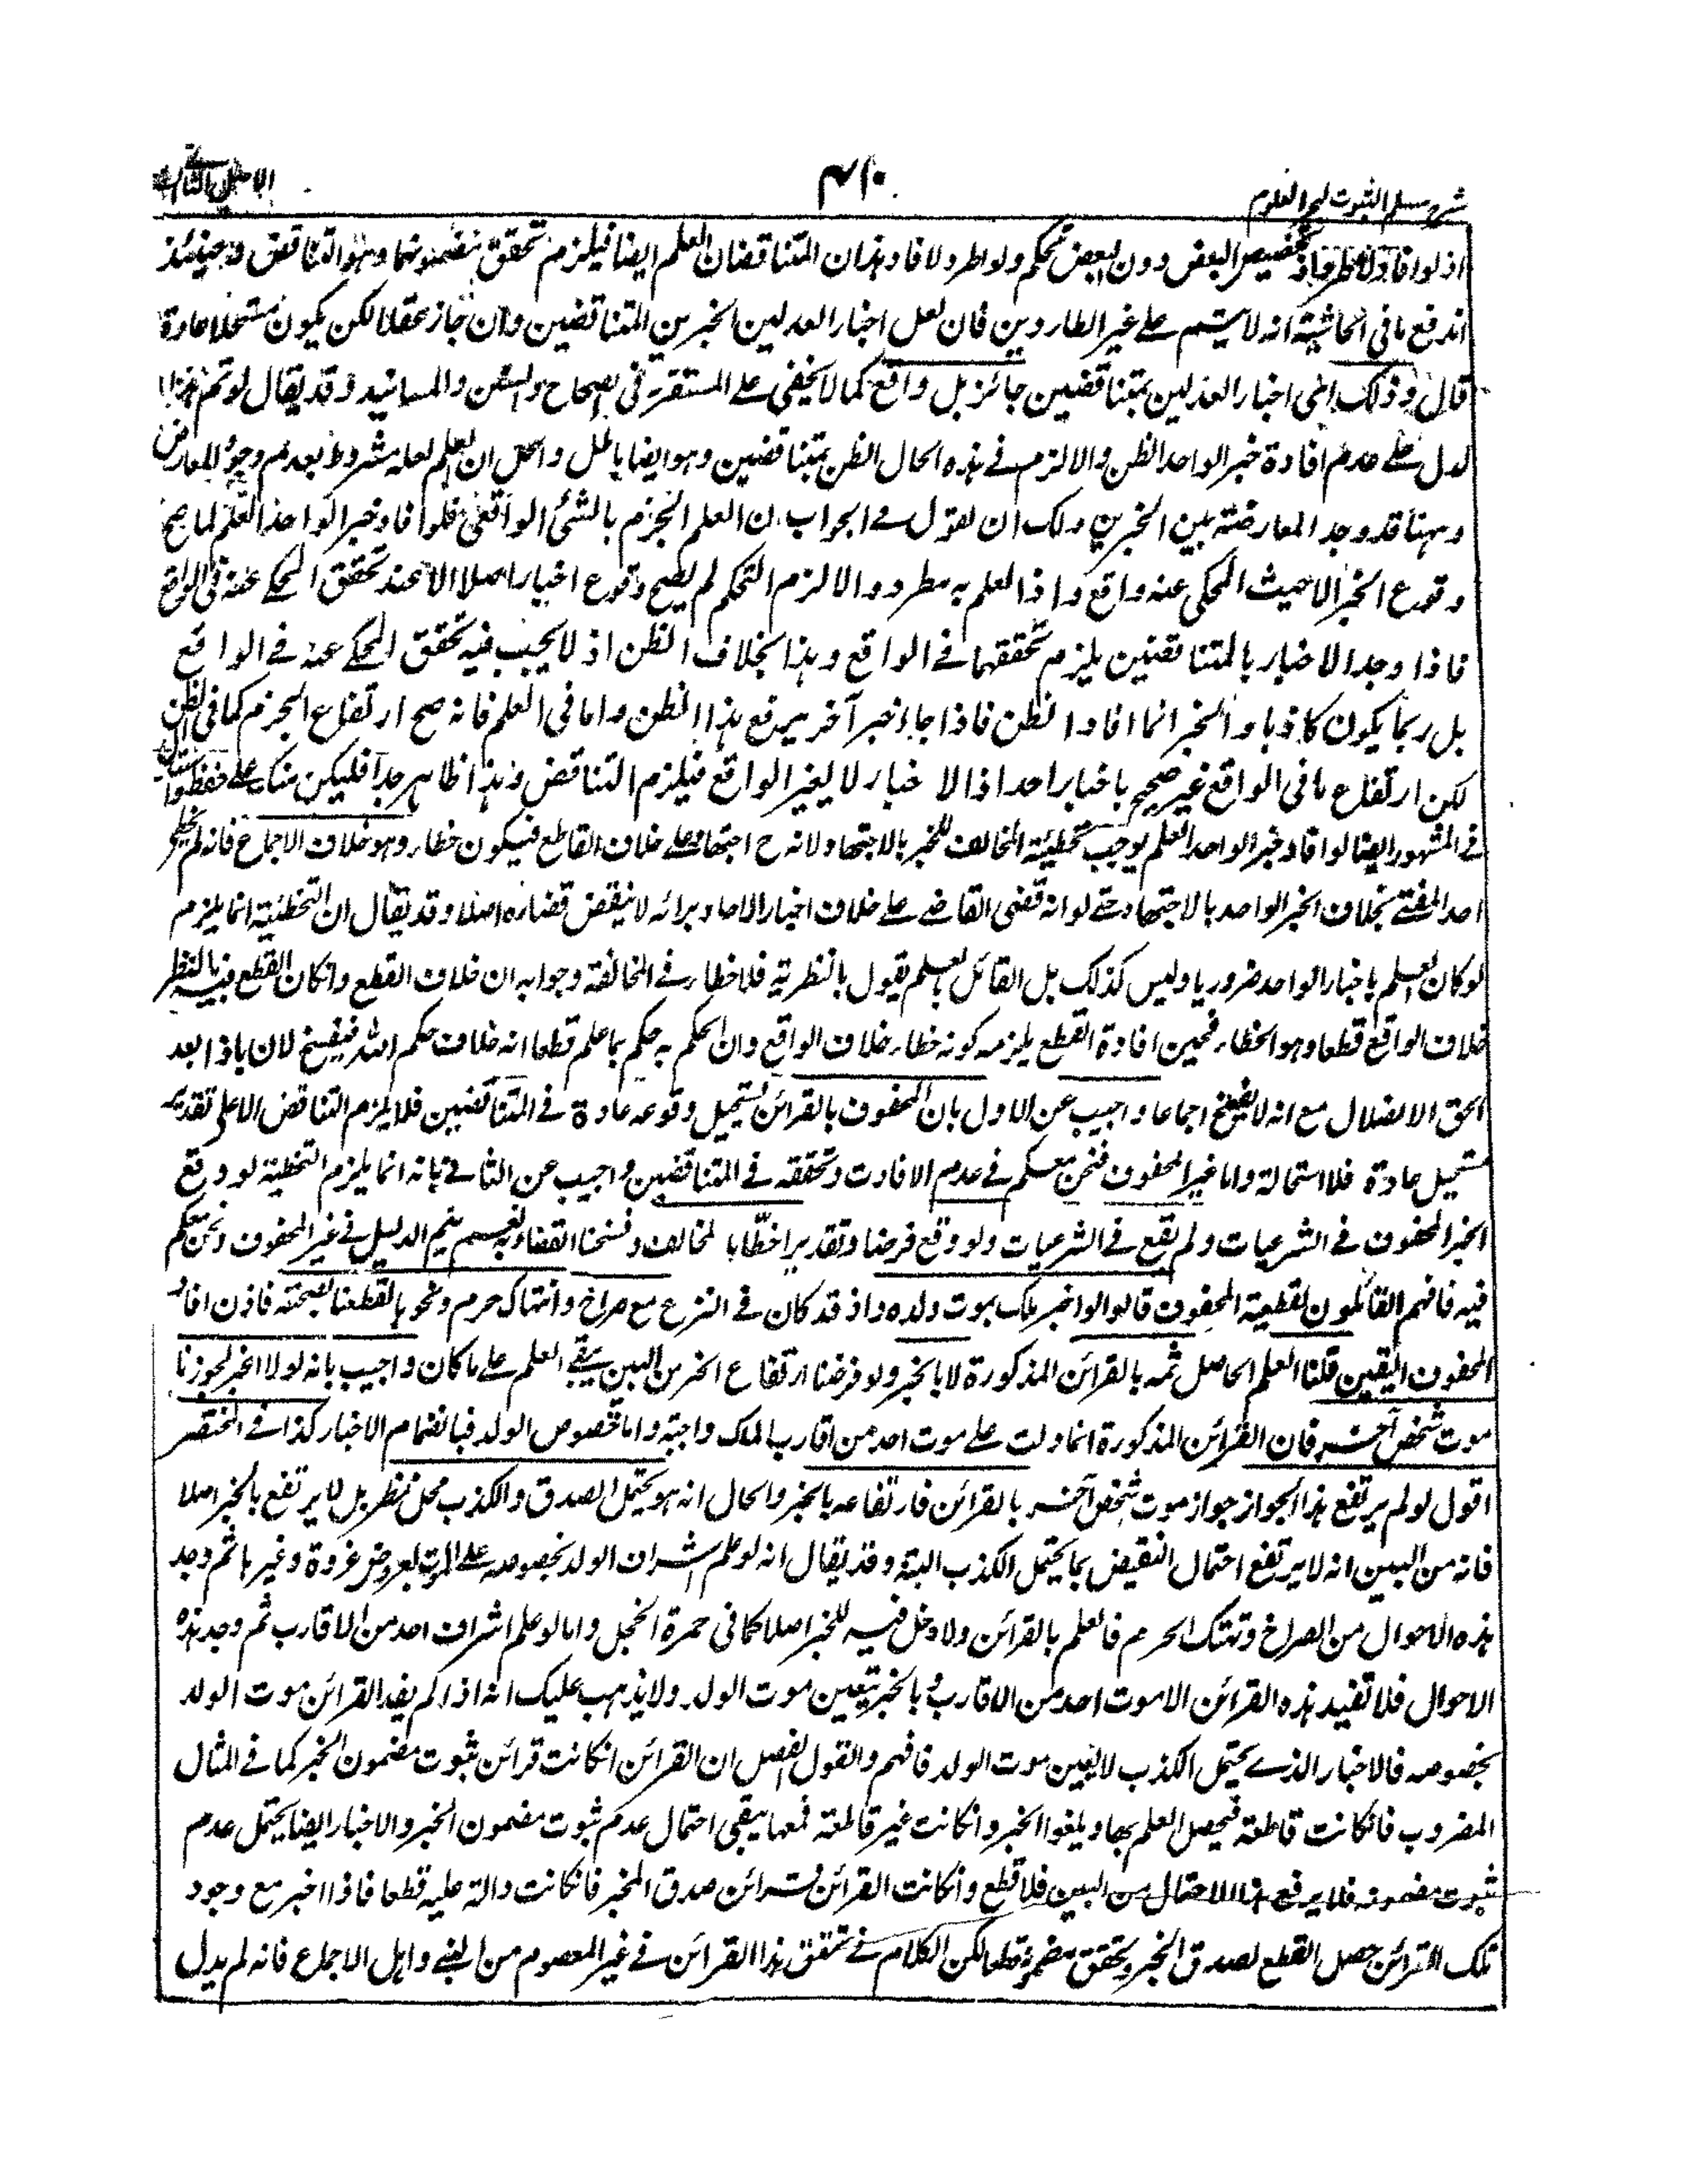 شرح مسلم الثبوت لبحر العلوم
٤١٠
الاصل الثانى
اذ لو افاد لاطرد اذ تخصيص البعض دون البعض تحكم ولو اطرد لافاد هذان المتناقضان العلم ايضا فيلزم تحقق مضمونهما وهو التناقض وحينئذ
اندفع ما فى الحاشية انه لا يتم على غير الطاردين فان لعل اخبار العدلين الخبرين المتناقضين وان جاز عقلا لكن يكون مستحيلا عادة
قال وذلك اى اخبار العدلين بمتناقضين جائز بل واقع كما لا يخفى على المستقرئ فى الصحاح والسنن والمسانيد وقد يقال لو تم هذا
لدل على عدم افادة خبر الواحد الظن والا لزم فى هذه الحال الظن بمتناقضين وهو ايضا باطل والحل ان العلم لعله مشروط بعدم وجود المعارض
وههنا قد وجد المعارضة بين الخبرين ولك ان تقول فى الجواب ان العلم الجزم بالشئ الواقعى فلو افاد خبر الواحد العلم لما صح
وقوع الخبر الا حيث المحكى عنه واقع واذ العلم به مطرد والا لزم التحكم لم يصح وقوع اخبار اصلا الا عند تحقق المحكى عنه فى الواقع
فاذا وجد الاخبار بالمتناقضين يلزم تحققهما فى الواقع وهذا بخلاف الظن اذ لا يجب فيه تحقق المحكى عنه فى الواقع
بل ربما يكون كاذبا والخبر انما افاد الظن فاذا جاء خبر آخر يرفع هذا الظن واما فى العلم فانه صح ارتفاع الجزم كما فى الظن
لكن ارتفاع ما فى الواقع غير صحيح باخبار احد اذ الاخبار لا يغير الواقع فيلزم التناقض وهذا ظاهر جدا فليكن منك على حفظ
فى المشهور ايضا لو افاد خبر الواحد العلم لوجب تخطئة المخالف للخبر بالاجتهاد لانه ح اجتهاد على خلاف القاطع فيكون خطاء وهو خلاف الاجماع فانه لم يخط
احد المفتى بخلاف الخبر الواحد بالاجتهاد حتى لو انه قضى القاضى على خلاف اخبار الآحاد برائه لا ينقض قضاءه اصلا وقد يقال ان التخطئة انما يلزم
لو كان العلم باخبار الواحد ضروريا وليس كذلك بل القائل بالعلم يقول بالنظرية فلا خطاء فى المخالفة وجوابه ان خلاف القطع وان كان القطع فيه بالنظر
خلاف الواقع قطعا وهو الخطاء فحين افادة القطع يلزمه كونه خطاء خلاف الواقع وان الحكم به حكم بما علم قطعا انه خلاف حكم الله فيفسخ لان ماذا بعد
الحق الا الضلال مع انه لا يفسخ اجماعا واجيب عن الاول بان المحفوف بالقرائن يستحيل وقوعه عادة فى المتناقضين فلا يلزم التناقض الا على تقدير
مستحيل عادة فلا استحالة واما غير المحفوف فنحن معكم فى عدم الافادت وتحققه فى المتناقضين واجيب عن الثانى بانه انما يلزم التخطئة لو وقع
الخبر المحفوف فى الشرعيات ولم يقع فى الشرعيات ولو وقع فرضا وتقديرا خطأنا المخالف وفسخنا القضاء به نعم يتم الدليل فى غير المحفوف ونحن معكم
فيه فافهم القائلون لقطعية المحفوف قالوا لو اخبر ملك بموت ولده واذ قد كان فى النزع مع صراخ وانتهاك حرم ونحوها لقطعنا بصحته فاذن افاد
المحفوف اليقين قلنا العلم الحاصل ثمه بالقرائن المذكورة لا بالخبر ولو فرضنا ارتفاع الخبر من البين يبقى العلم على ما كان واجيب بانه لولا الخبر لجوزنا
موت شخص آخر فان القرائن المذكورة انما دلت على موت احد من اقارب الملك واجبة واما خصوص الولد فبانضمام الاخبار كذا فى المختصر
اقول لو لم يرتفع هذا الجواز جواز موت شخص آخر بالقرائن فارتفاعه بالخبر والحال انه هو يحتمل الصدق والكذب محل نظر بل لا يرتفع بالخبر اصلا
فانه من البين انه لا يرتفع احتمال النقيض بما يحتمل الكذب البتة وقد يقال انه لو علم اشراف الولد بخصوصه على الموت لعروض غروة وغيرها ثم وجد
هذه الاحوال من الصراخ وتهتك الحرم فالعلم بالقرائن ولا دخل فيه للخبر اصلا كما فى حمرة الخجل واما لو علم اشراف احد من الاقارب ثم وجد هذه
الاحوال فلا تفيد هذه القرائن الا موت احد من الاقارب وبالخبر يتعين موت الولد ولا يذهب عليك انه اذا لم يفد القرائن موت الولد
بخصوصه فالاخبار الذى يحتمل الكذب لا يعين موت الولد فافهم والقول الفصل ان القرائن انكانت قرائن ثبوت مضمون الخبر كما فى المثال
المضروب فانكانت قاطعة فيحصل العلم بها ويلغوا الخبر وانكانت غير قاطعة فمعها يبقى احتمال عدم ثبوت مضمون الخبر والاخبار ايضا يحتمل عدم
ثبوت مضمونه فلا يرفع هذا الاحتمال من البين فلا قطع وانكانت القرائن قرائن صدق المخبر فانكانت دالة عليه قطعا فاذا اخبر مع وجود
تلك القرائن حصل القطع لصدق الخبر ويتحقق مضمونه قطعا لكن الكلام فى تحقق هذا القرائن فى غير المعصوم من النبى واهل الاجماع فانه لم يدل